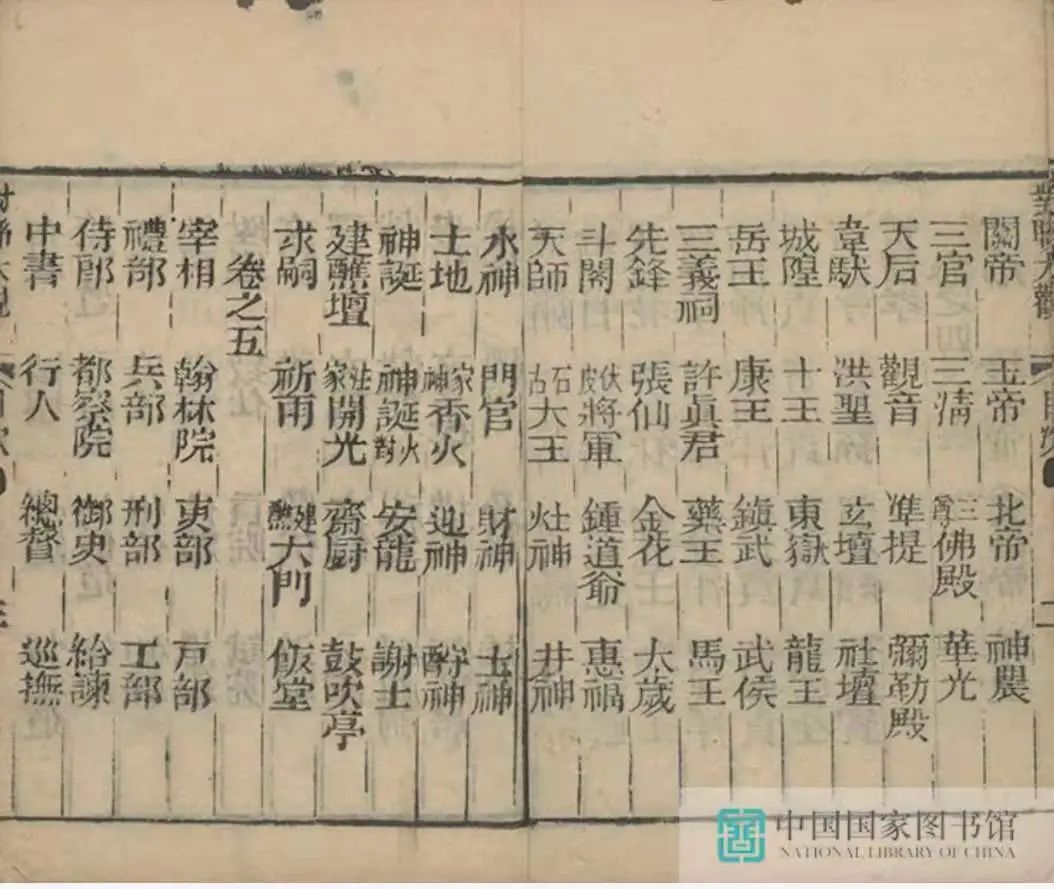 對聯大觀 目錄 二
關帝 玉帝 北帝 神農
三官 三淸 三尊佛殿 華光
天后 觀音 準提 彌勒殿
韋馱 洪聖 玄壇 社壇
城隍 十王 東嶽 龍王
岳王 康王 鎭武 武侯
三義祠 許眞君 藥王 馬王
先鋒 張仙 金花 太歲
斗閣 伏皮將軍 鍾道爺 惠福
天師 石古大王 灶神 井神
水神 門官 財神 土神
土地 家神香火 迎神 酧神
神誕 神誕火對 安龍 謝土
建醮壇 家開光 齋厨 鼓吹亭
求嗣 祈雨 建醮大門 飯堂
卷之五
宰相 翰林院 吏部 戸部
禮部 兵部 刑部 工部
侍郎 都察院 御史 給諫
中書 行人 總督 巡撫
對聯大觀 目次 三
中国国家图书馆
NATIONAL LIBRARY OF CHINA